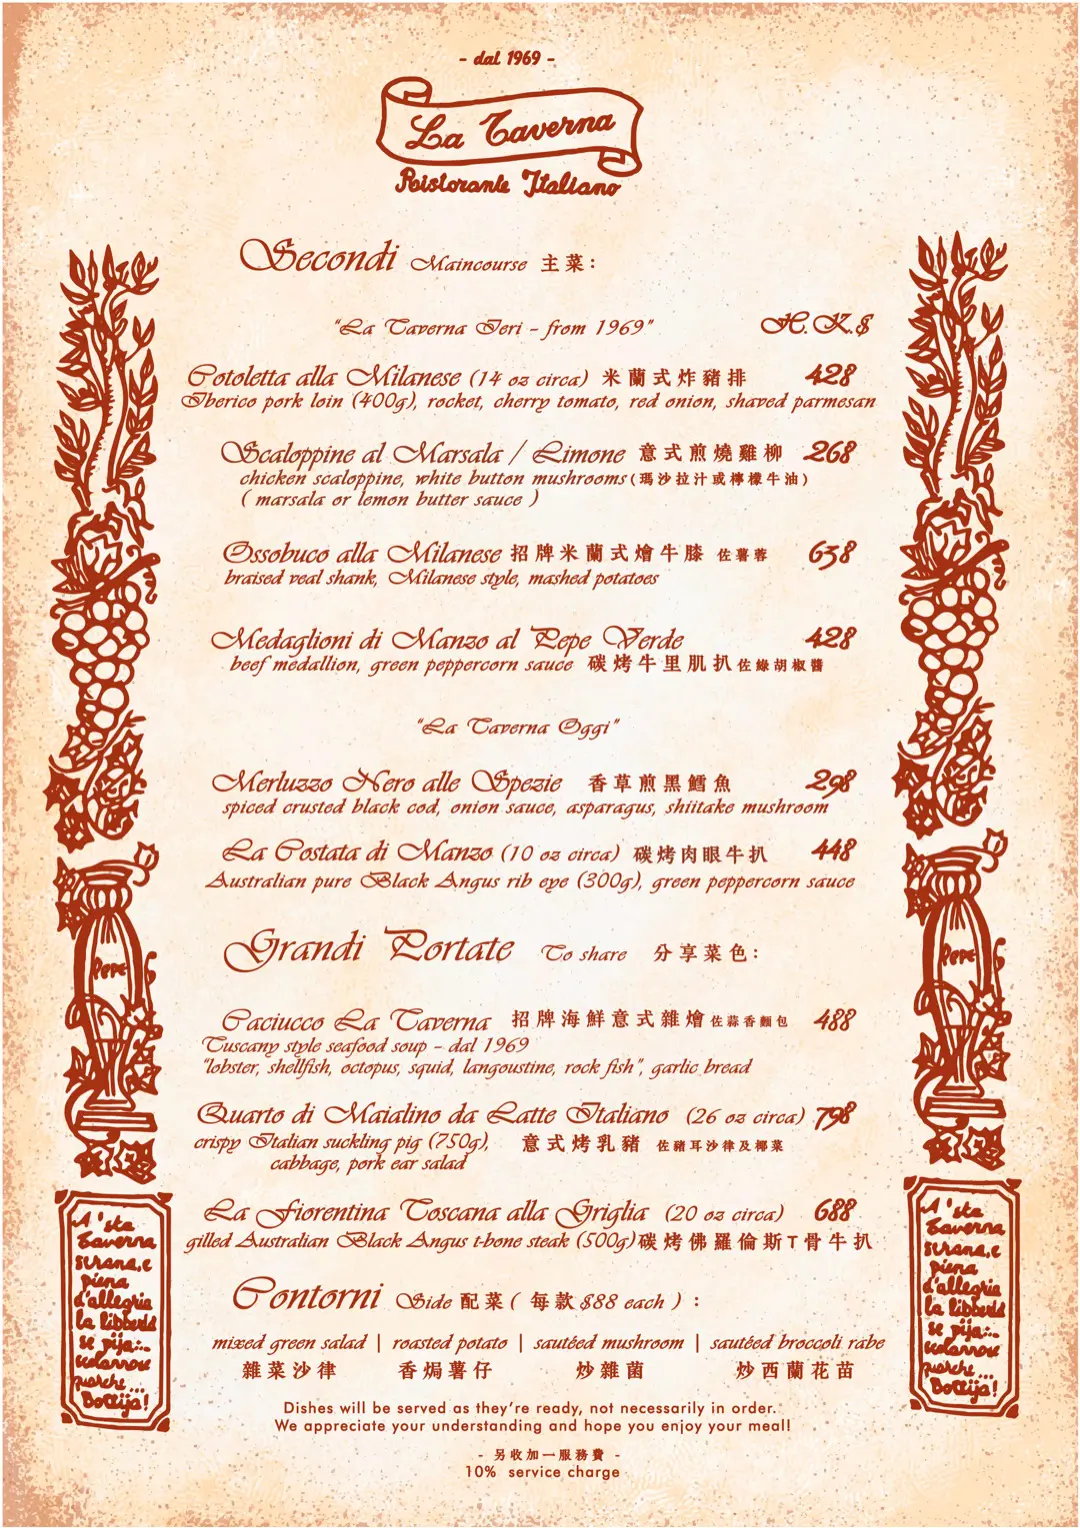 - dal 1969 -
La Taverna
Ristorante Italiano
Secondi Maincourse 主菜:
"La Taverna Ieri - from 1969" H.K.$
Cotoletta alla Milanese (14 oz circa) 米蘭式炸豬排 428
Iberico pork loin (400g), rocket, cherry tomato, red onion, shaved parmesan
Scaloppine al Marsala / Limone 意式煎燒雞柳 268
chicken scaloppine, white button mushrooms (瑪沙拉汁或檸檬牛油)
( marsala or lemon butter sauce )
Ossobuco alla Milanese 招牌米蘭式燴牛膝 佐薯蓉 638
braised veal shank, Milanese style, mashed potatoes
Medaglioni di Manzo al Pepe Verde 428
beef medallion, green peppercorn sauce 碳烤牛里肌扒佐綠胡椒醬
"La Taverna Oggi"
Merluzzo Nero alle Spezie 香草煎黑鱈魚 298
spiced crusted black cod, onion sauce, asparagus, shiitake mushroom
La Costata di Manzo (10 oz circa) 碳烤肉眼牛扒 448
Australian pure Black Angus rib eye (300g), green peppercorn sauce
Grandi Portate To share 分享菜色:
Caciucco La Taverna 招牌海鮮意式雜燴佐蒜香麵包 488
Tuscany style seafood soup - dal 1969
"lobster, shellfish, octopus, squid, langoustine, rock fish", garlic bread
Quarto di Maialino da Latte Italiano (26 oz circa) 798
crispy Italian suckling pig (750g), 意式烤乳豬 佐豬耳沙律及椰菜
cabbage, pork ear salad
La Fiorentina Toscana alla Griglia (20 oz circa) 688
gilled Australian Black Angus t-bone steak (500g)碳烤佛羅倫斯T骨牛扒
Contorni Side 配菜 ( 每款$88 each ) :
mixed green salad | roasted potato | sautéed mushroom | sautéed broccoli rabe
雜菜沙律 香焗薯仔 炒雜菌 炒西蘭花苗
Dishes will be served as they're ready, not necessarily in order.
We appreciate your understanding and hope you enjoy your meal!
- 另收加一服務費 -
10% service charge
Pepe
A 'sta
Taverna
strana, e
piena
d'allegria
la libbertà
se pija...
Bottija!
Pepe
A 'sta
Taverna
strana, e
piena
d'allegria
la libbertà
se pija...
Bottija!